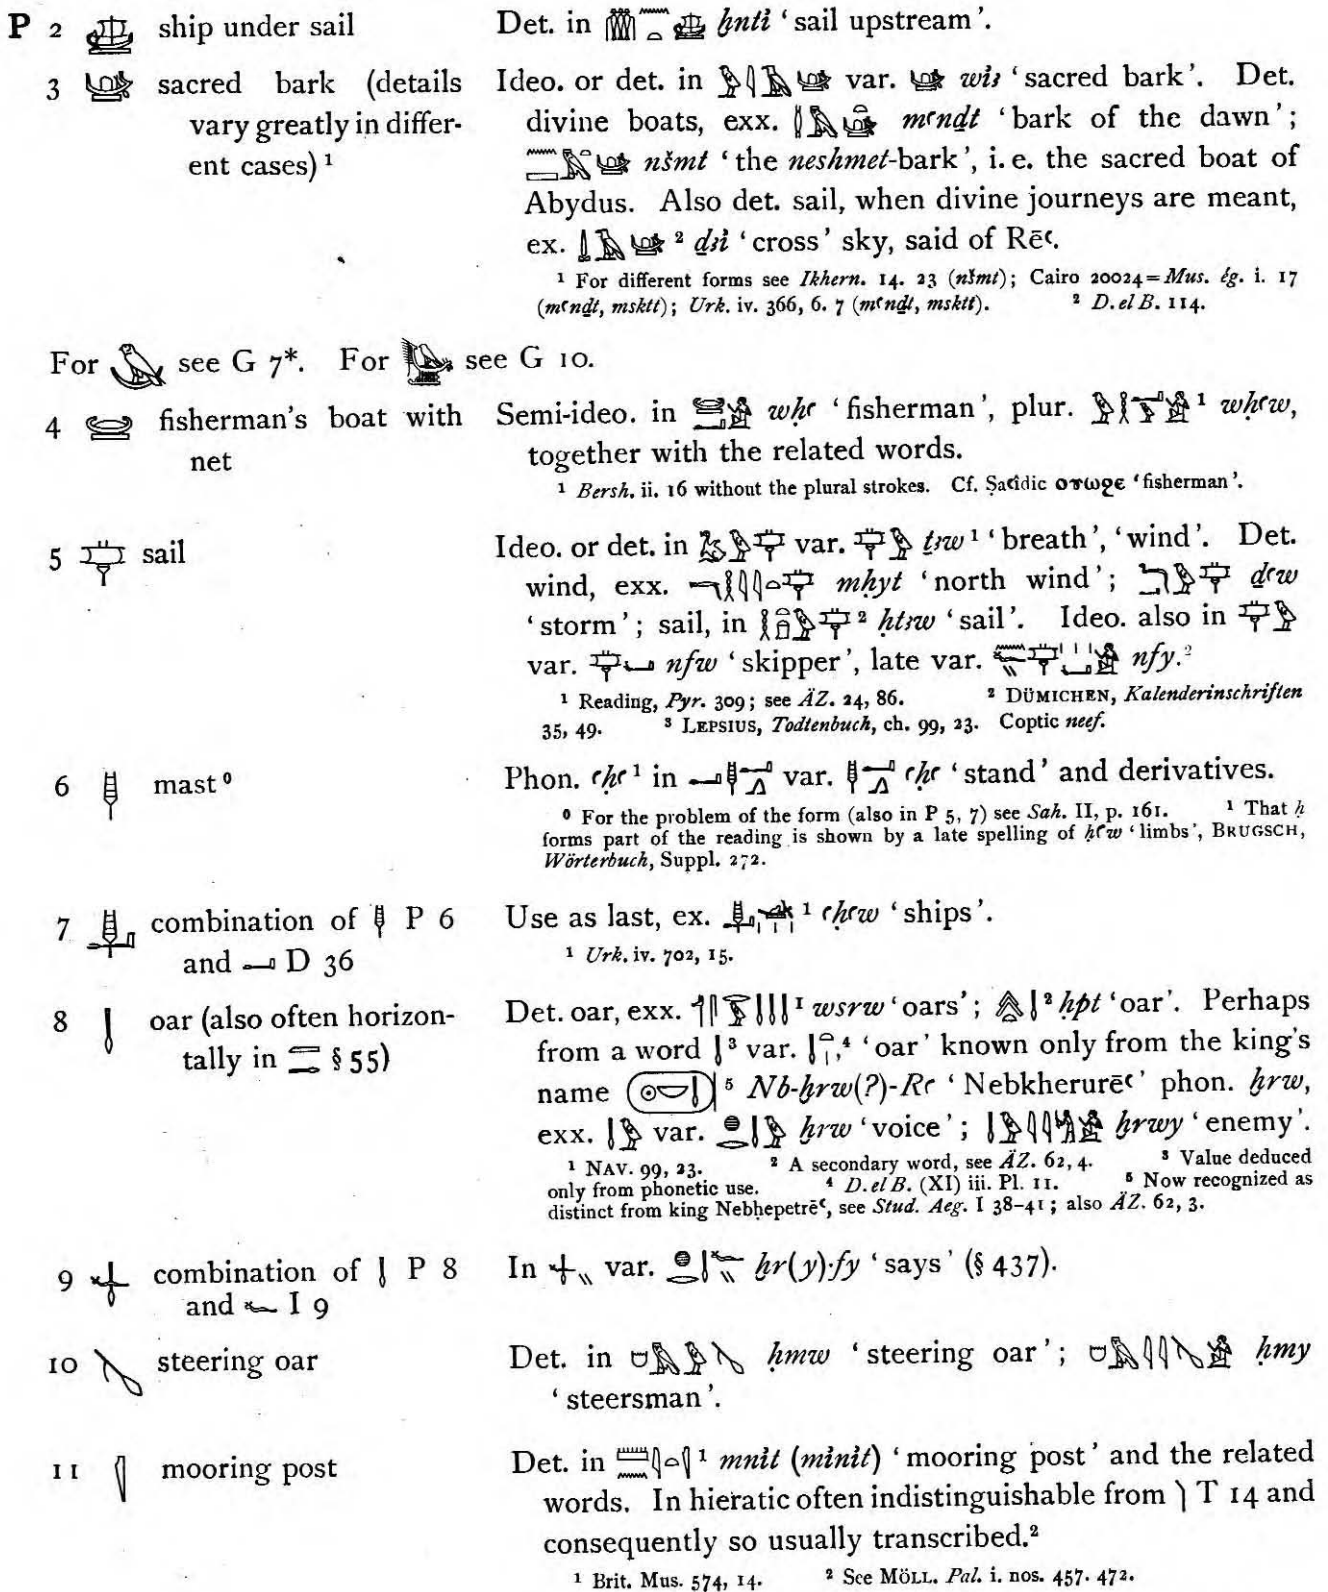 P 2 𓊞 ship under sail Det. in 𓏃𓈖𓏏𓊞 ḫnti̓ ‘sail upstream’.
3 𓊟 sacred bark (details Ideo. or det. in 𓅱𓇋𓄿𓊟 var. 𓊟 wi̓ꜣ ‘sacred bark’. Det.
vary greatly in differ- divine boats, exx. mꜥnḏt ‘bark of the dawn’;
ent cases) ¹ nšmt ‘the neshmet-bark’, i.e. the sacred boat of
Abydus. Also det. sail, when divine journeys are meant,
ex. ² ḏꜣi̓ ‘cross’ sky, said of Rēꜥ.
¹ For different forms see Ikhern. 14. 23 (nšmt); Cairo 20024=Mus. ég. i. 17
(mꜥnḏt, msktt); Urk. iv. 366, 6. 7 (mꜥnḏt, msktt). ² D. el B. 114.
For 𓅋 see G 7*. For 𓅐 see G 10.
4 𓊡 fisherman’s boat with Semi-ideo. in wḥꜥ ‘fisherman’, plur. ¹ wḥꜥw,
net together with the related words.
¹ Bersh. ii. 16 without the plural strokes. Cf. Ṣaꜥîdic ⲟⲩⲱϩⲉ ‘fisherman’.
5 𓊡 sail Ideo. or det. in var. ṯꜣw ¹ ‘breath’, ‘wind’. Det.
wind, exx. mḥyt ‘north wind’; ḏꜥw
‘storm’; sail, in ² ḥtꜣw ‘sail’. Ideo. also in
var. nfw ‘skipper’, late var. nfy.²
¹ Reading, Pyr. 309; see ÄZ. 24, 86. ² DÜMICHEN, Kalenderinschriften
35, 49. ³ LEPSIUS, Todtenbuch, ch. 99, 23. Coptic neef.
6 𓊢 mast ⁰ Phon. ꜥḥꜥ ¹ in var. ꜥḥꜥ ‘stand’ and derivatives.
⁰ For the problem of the form (also in P 5, 7) see Sah. II, p. 161. ¹ That ḥ
forms part of the reading is shown by a late spelling of ḥꜥw ‘limbs’, BRUGSCH,
Wörterbuch, Suppl. 272.
7 𓊣 combination of 𓊢 P 6 Use as last, ex. ¹ ꜥḥꜥw ‘ships’.
and 𓂝 D 36 ¹ Urk. iv. 702, 15.
8 𓊤 oar (also often horizon- Det. oar, exx. ¹ wsrw ‘oars’; ² ḥpt ‘oar’. Perhaps
tally in § 55) from a word 𓊤 ³ var. ,⁴ ‘oar’ known only from the king’s
name ⁵ Nb-ḫrw(?)-Rꜥ ‘Nebkherurēꜥ’ phon. ḫrw,
exx. 𓊤𓅱 var. 𓐍𓂋𓊤𓅱 ḫrw ‘voice’; ḫrwy ‘enemy’.
¹ NAV. 99, 23. ² A secondary word, see ÄZ. 62, 4. ³ Value deduced
only from phonetic use. ⁴ D. el B. (XI) iii. Pl. 11. ⁵ Now recognized as
distinct from king Nebḥepetrēꜥ, see Stud. Aeg. I 38–41; also ÄZ. 62, 3.
9 𓊥 combination of 𓊤 P 8 In 𓊥𓏭 var. ḫr(y)·fy ‘says’ (§ 437).
and 𓆑 I 9
10 𓊦 steering oar Det. in ḥmw ‘steering oar’; ḥmy
‘steersman’.
11 𓊧 mooring post Det. in ¹ mni̓t (mi̓ni̓t) ‘mooring post’ and the related
words. In hieratic often indistinguishable from 𓌙 T 14 and
consequently so usually transcribed.²
¹ Brit. Mus. 574, 14. ² See MÖLL. Pal. i. nos. 457. 472.